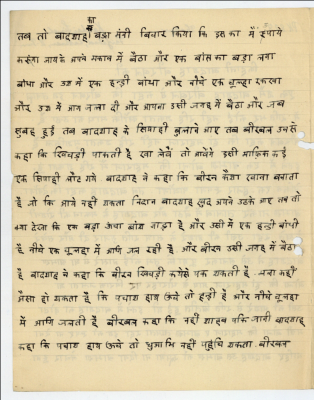 का
तब तो बादशाह बड़ा मंत्री बिचार किया कि इस का में उपाये
करूंगा आयके अपने मकान में बैठा और एक बांस का बड़ा लगा
बांधा और उस में एक हन्डी बांधा और नीचे एक चूल्हा रक्खा
और उस में आग जला दी और आपना उसी जगह में बैठा और जब
सुबह हुई तब बादशाह के सिपाही बुलाने आए तब बीरबल उनसे
कहा कि खिचड़ी पाकती है खा लेवें तो आवेंगे इसी माफिक कई
एक सिपाही लौट गये बादशाह ने कहा कि बीरबल कैसा खाना बनाता
है जो कि आये नहीं शकता निदान बादशाह खुद अपने उठके आए तब तो
क्या देखा कि एक बड़ा ऊंचा बांस गाड़ा है और उसी में एक हन्डी बांधी
है नीचे एक चूल्हा में आग जल रही है और बीरबल उसी जगह में बैठा
है बादशाह ने कहा कि बीरबल खिचड़ी कैसे पक शकती है कहीं
ऐसा हो शकता है कि पचास हाथ ऊंचे तो हन्डी है और नीचे चूल्हा
में आगि जलती है बीरबल कहा कि नहीं साहब पकि जागी बादशाह
कहा कि पचास हाथ ऊंचे तो धुआंभि नहीं पहुंचि शकता बीरबल